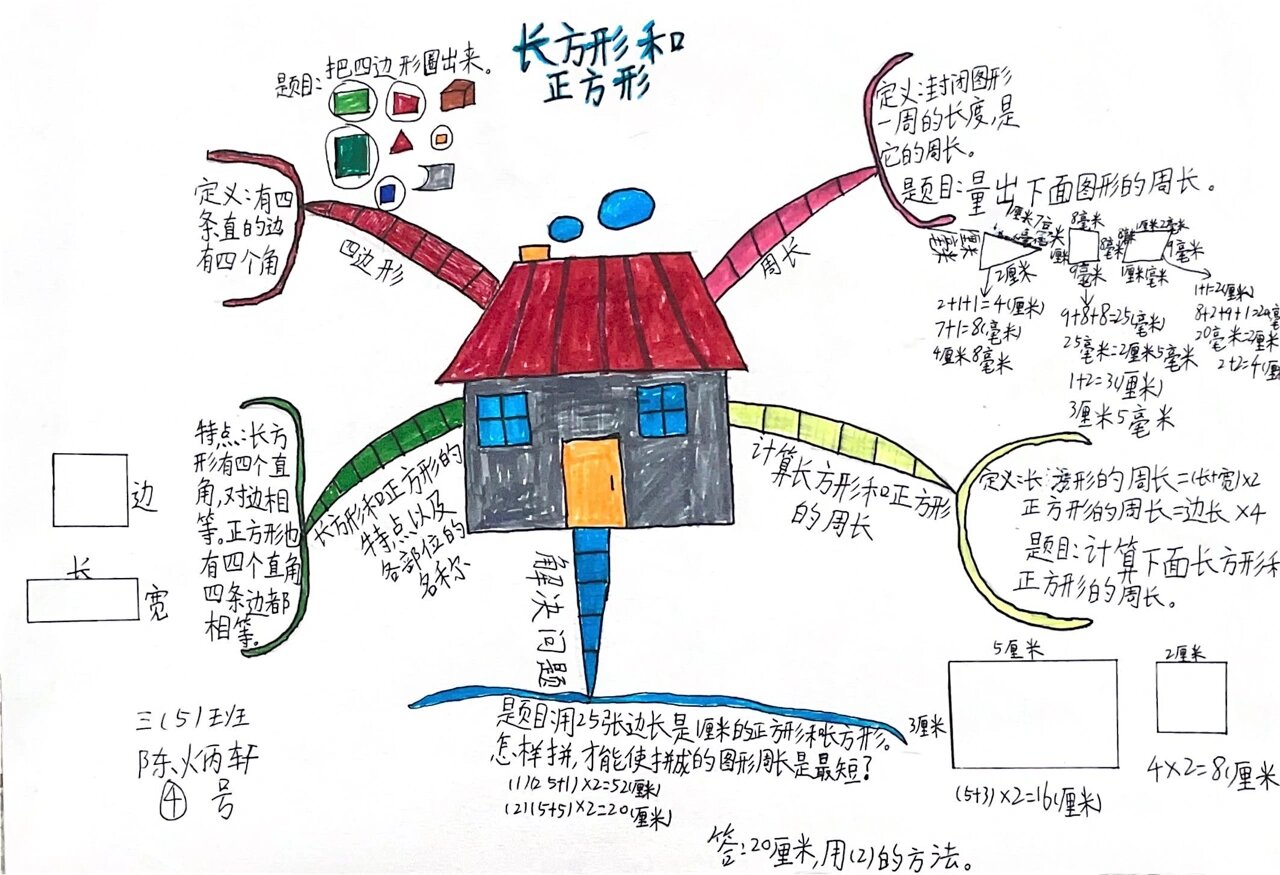 长方形和
正方形
题目:把四边形圈出来。
定义:有四
条直的边
有四个角
四边形
定义:封闭图形
一周的长度,是
它的周长。
题目:量出下面图形的周长。
周长
8毫米
2厘米
9毫米
9毫米
2+1+1=4(厘米)
7+1=8(毫米)
4厘米8毫米
9+8+8=25(毫米)
25毫米=2厘米5毫米
1+2=3(厘米)
3厘米5毫米
1+1=2(厘米)
20毫米=2厘米
特点:长方
形有四个直
角,对边相
等。正方形也
有四个直角
四条边都
相等。
长方形和正方形的
特点以及
各部位的
名称
边
长
宽
计算长方形和正方形
的周长
正方形的周长=边长×4
题目:计算下面长方形和
正方形的周长。
5厘米
3厘米
(5+3)×2=16(厘米)
2厘米
4×2=8(厘米
解决问题
题目:用25张边长是1厘米的正方形和长方形。
怎样拼,才能使拼成的图形周长是最短?
(1)(25+1)×2=52(厘米)
(2)(5+5)×2=20(厘米)
答:20厘米,用(2)的方法。
三(5)班
陈炳轩
④号